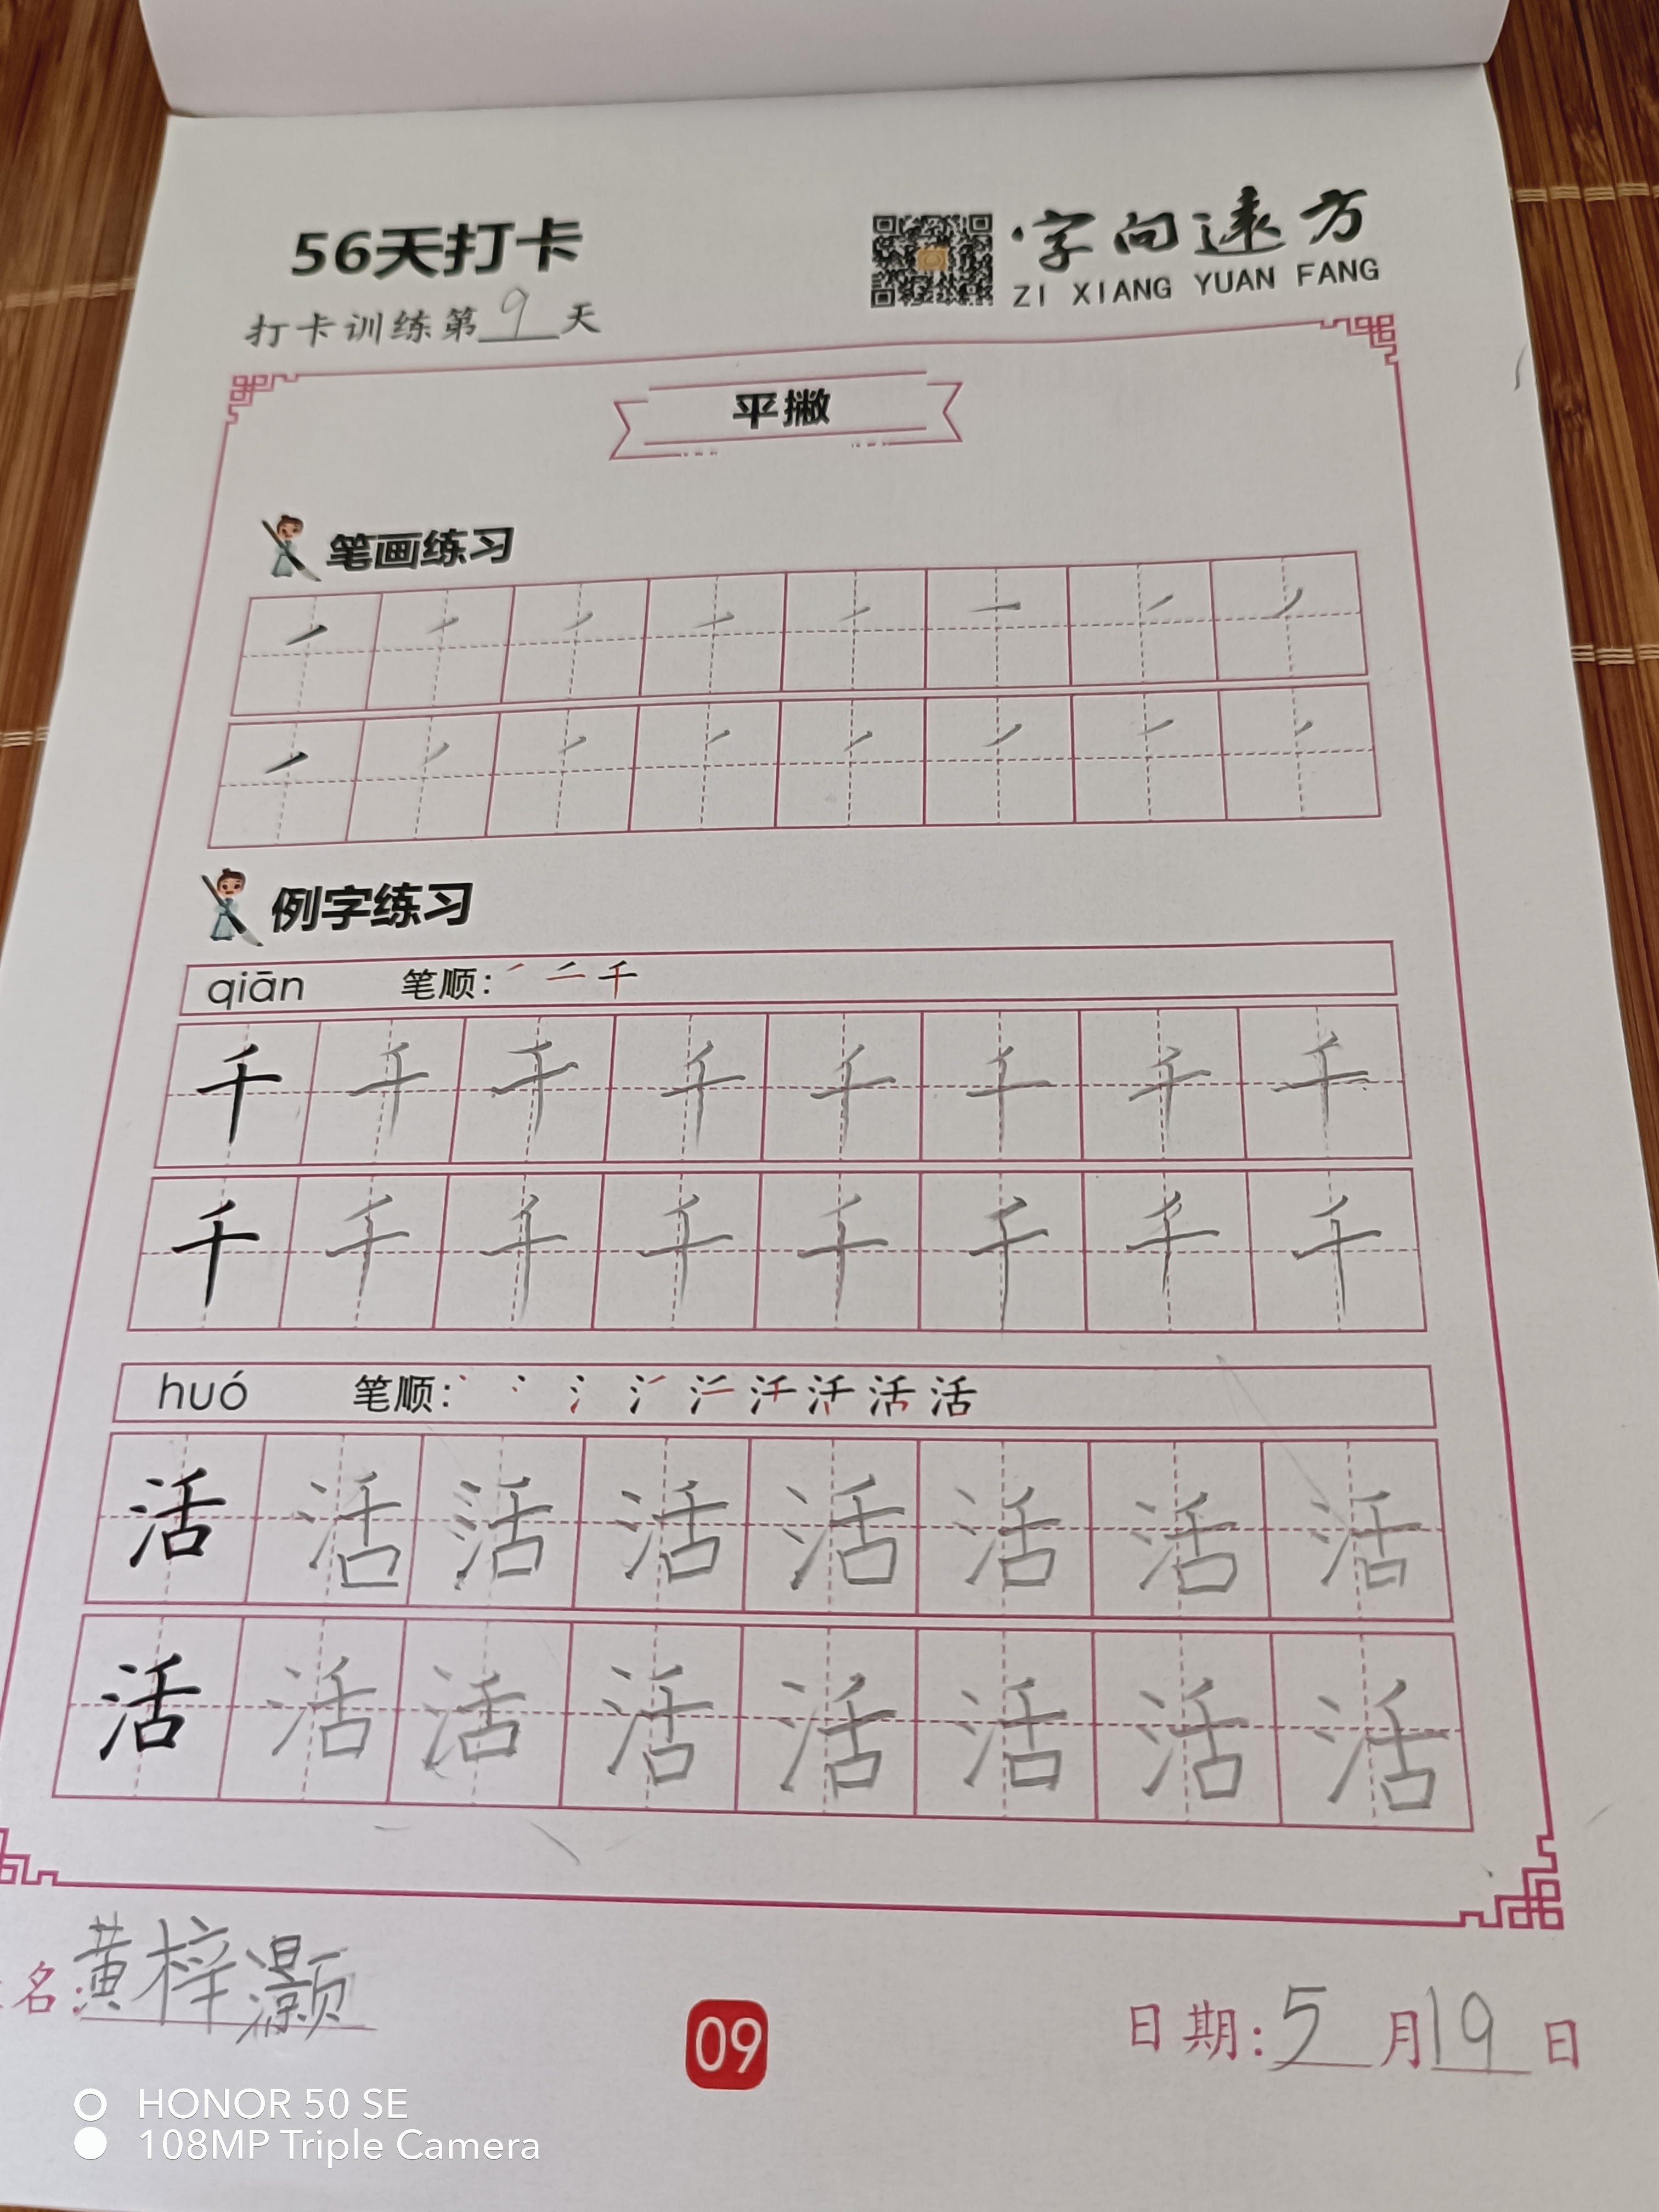 56天打卡
字向远方
ZI XIANG YUAN FANG
打卡训练第9天
平撇
笔画练习
例字练习
qiān 笔顺: 丿 二 千
千 千 千 千 千 千 千 千
千 千 千 千 千 千 千 千
huó 笔顺:
活 活 活 活 活 活 活 活
活 活 活 活 活 活 活 活
名:黄梓灏
09
日期:5月19日
HONOR 50 SE
108MP Triple Camera